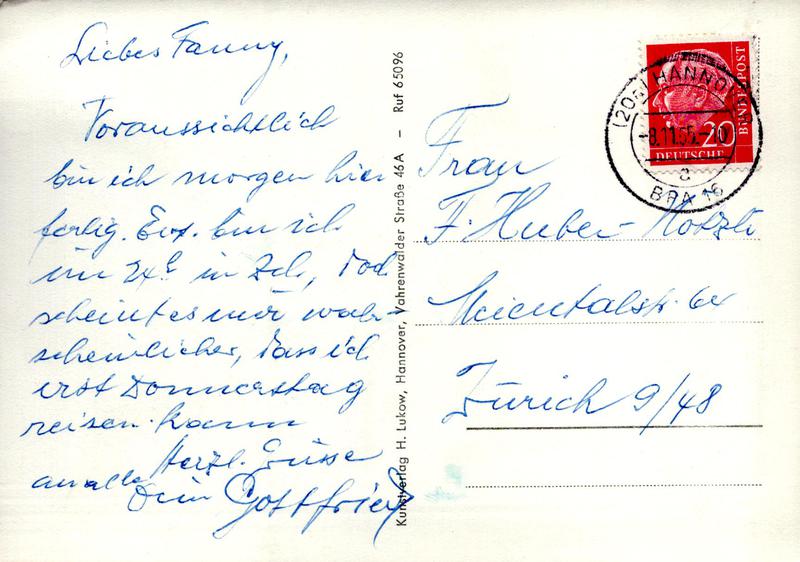 Liebes Fanny,
Voraussichtlich
bin ich morgen hier
fertig. Evt. bin ich
um 24h in Zch, doch
scheint es mir wahr-
scheinlicher, dass ich
erst Donnerstag
reisen kann
Herzl. Grüsse
an alle Dein Gottfried
Kunstverlag H. Lukow, Hannover, Vahrenwalder Straße 46A — Ruf 65096
20
DEUTSCHE
BUNDESPOST
(20a) HANNO
-8.11.55.-20
a
BPA 16
Frau
F. Huber-Nötzli
Meientalstr. 64
Zürich 9/48